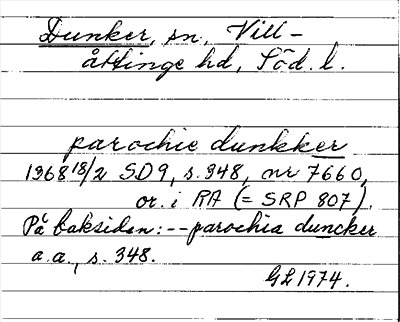 Dunker, sn, Vill-
åttinge hd, Söd. l.
parochie dunkker
1368 18/2 SD9, s. 348, nr 7660,
or. i RA (= SRP 807).
På baksidan: -- parochia duncker
a.a., s. 348.
GL 1974.